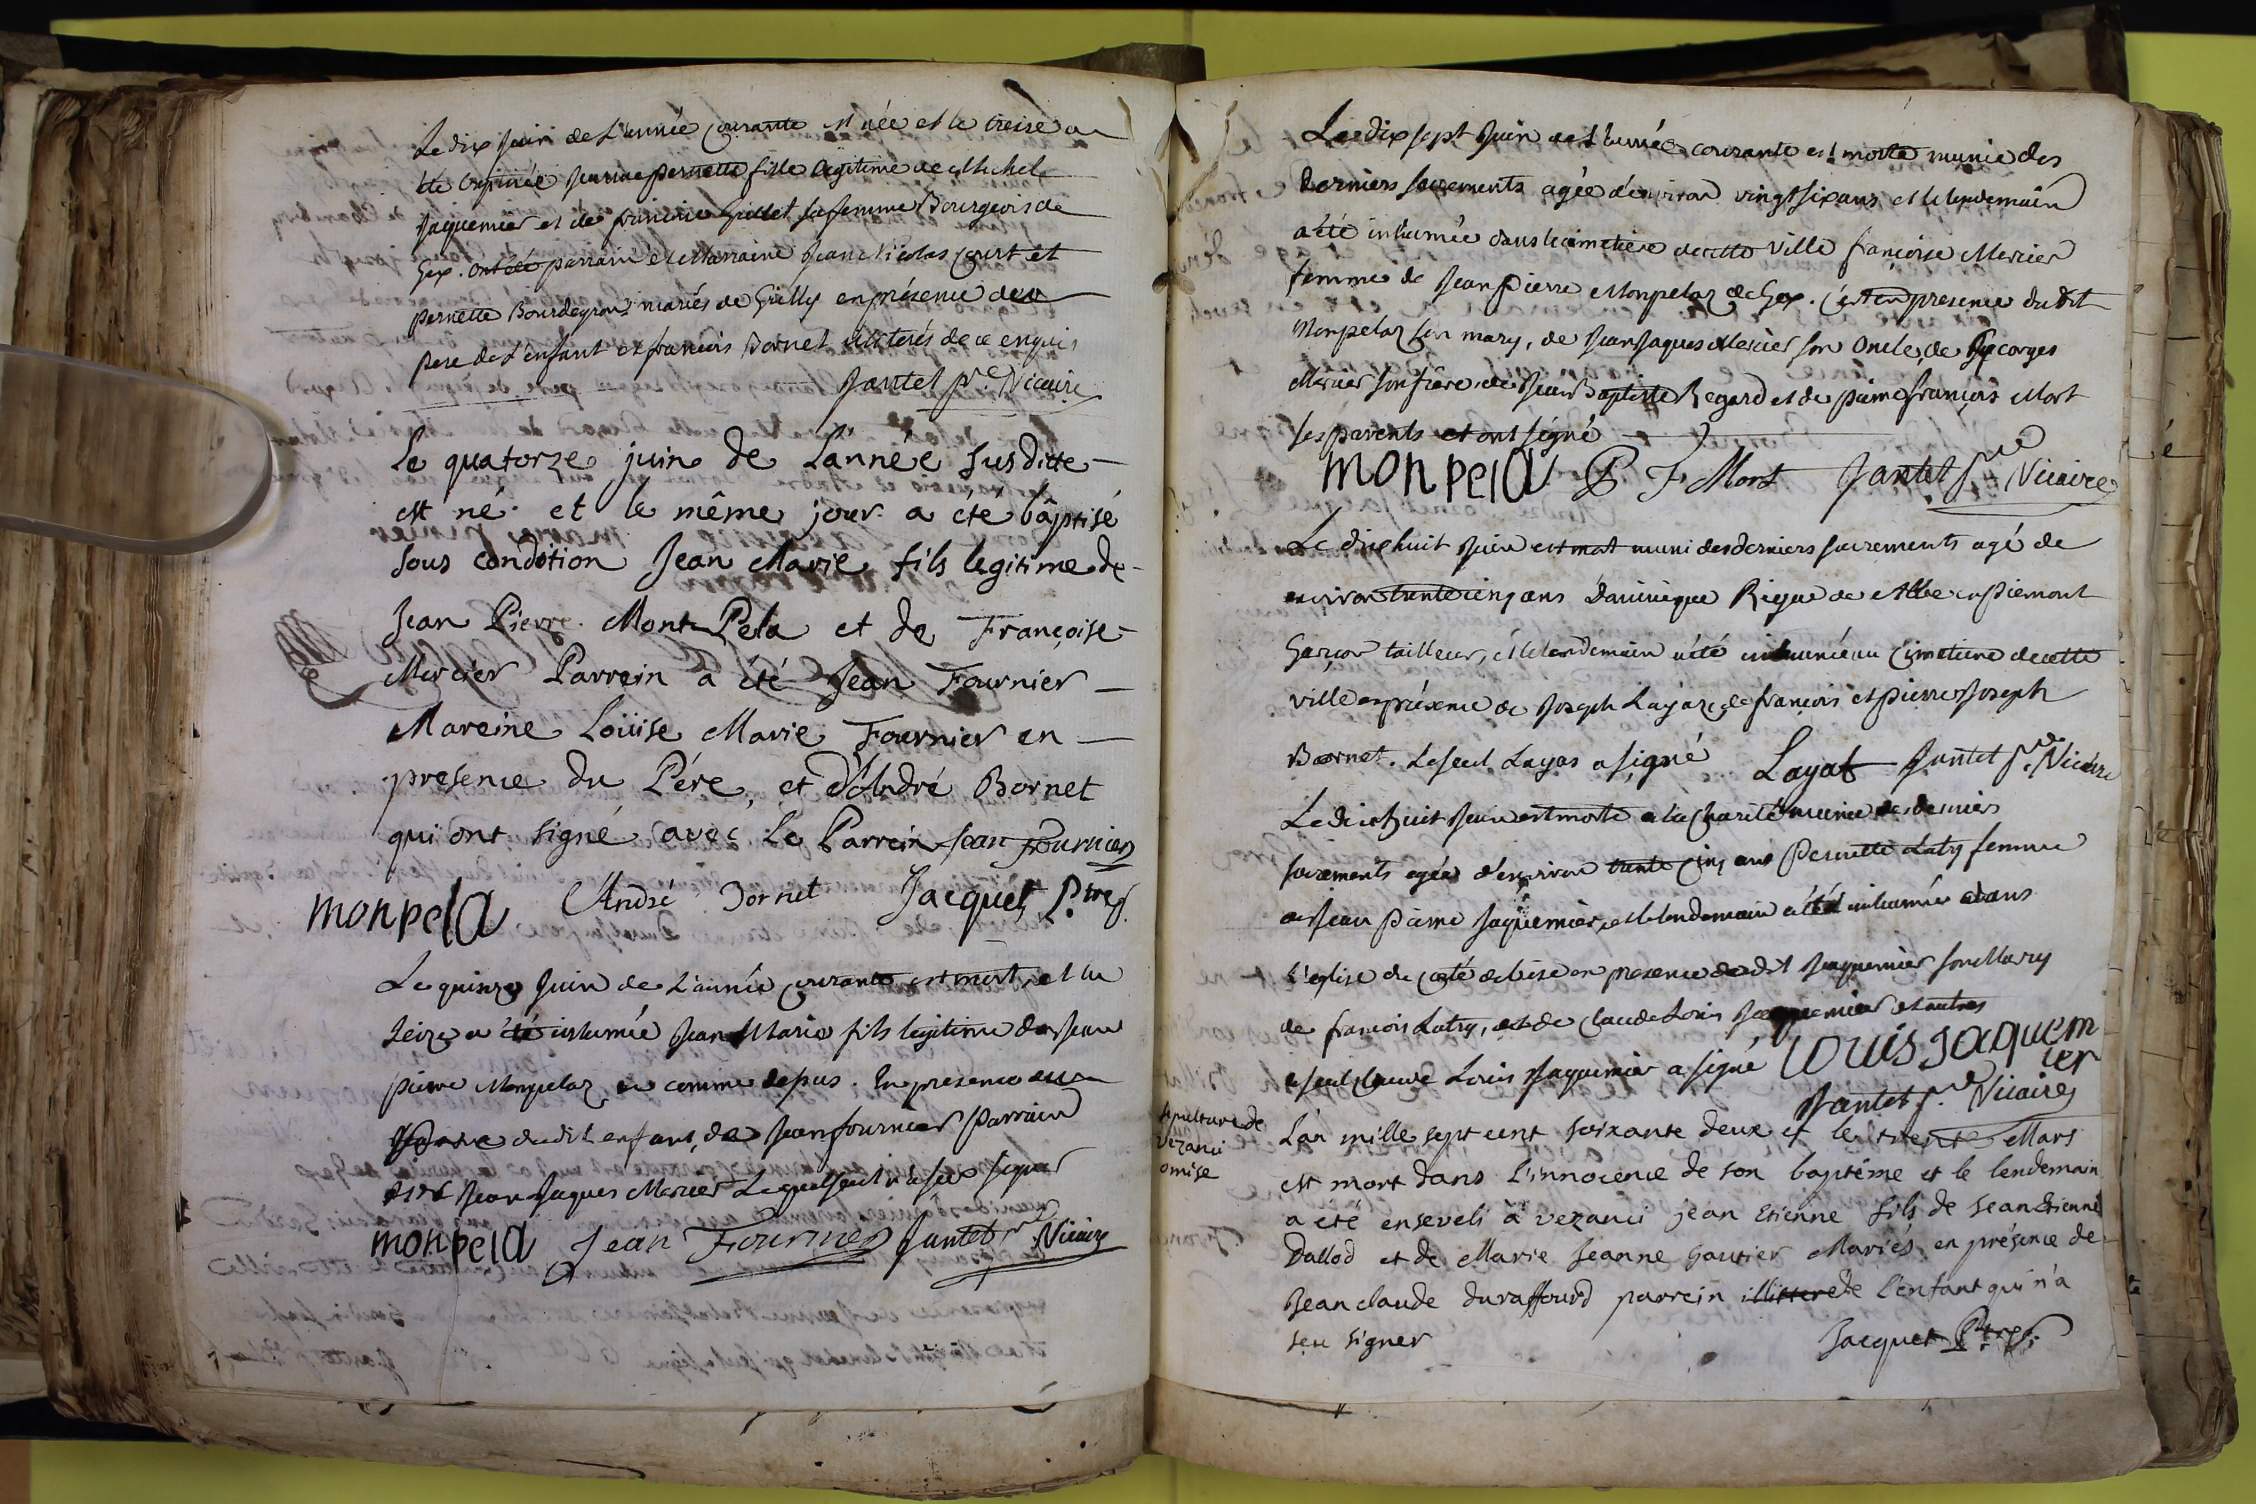 Le dix Juin de L'année courante est née et le treise a
été baptisée Jeanne pernette fille légitime de Michel
Jaquemier et de francine Grillet sa femme Bourgeois de
Gex. ont été parrain et Marraine Jean Nicolas Court et
pernette Bourdeyron mariés de Grilly en présence du
pere de L'enfant et francois Bornet illiterés de ce enquis
Jantet p.re Vicaire
Le quatorze juin de L'année susditte
est né et le même jour a été bâptisé
sous condition Jean Marie fils legitime de
Jean Pierre Mont Pela et de Françoise
Mercier Parrein a été Jean Fournier
Mareine Loüise Marie Fournier en
presence du Pére, et d'André Bornet
qui ont signé avec le Parrein Jean Fournier
monpela André Bornet Jacquet P.tre
Le quinze Juin de L'année courante est mort et le
seize a été inhumé Jean Marie fils legitime de Jean
pierre Monpelaz comme depus. En presence du
dudit enfant, de Jean fournier parrain
et de Jean Jaques Mercier Lequel seul n'a seu signer
monpela Jean Fournier Jantet p.re Vicaire
Le dix sept Juin de L'année courante est morte munie des
Derniers sacrements agée d'environ vingt six ans et le lendemain
a été inhumée dans le cimetière de cette ville françoise Mercier
femme de Jean pierre Monpelaz de Gex. C'est en présence dudit
Monpelaz son mary, de Jean Jaques Mercier son Oncle, de Georges
Mercier son frère, de Jean Baptiste Regard et de pierre françois Mort
ses parents et ont signé
monpela P F Mort Jantet p.re Vicaire
Le dix huit Juin est mort muni des derniers sacrements agé de
environ trente cinq ans Dominique Rigue de Albe en piemont
Garçon tailleur, et le lendemain a été inhumé au cimetiere de cette
ville en présence de Joseph Layaz, de françois et pierre Joseph
Bornet. Le seul Layas a signé Layat Jantet p.re Vicaire
Le dix huit Juin est morte a la Charité munie des derniers
sacrements agée d'environ trente cinq ans Pernette Latry femme
de Jean pierre Jaquemier, et le lendemain a été inhumée dans
L'eglise du coté de bise en presence dudit Jaquemier son Mary
de francois Latry, et de Claude Louis Jaquemier et autres
le seul Claude Louis Jaquemier a signé Louis Jaquem
ier
Jantet p.re Vicaire
sepulture de
Vezanci
omise
L'an mille sept cent soixante deux et le trente Mars
est mort dans l'innocence de son baptême et le lendemain
a été enseveli à vezanci jean Etienne fils de Jean Etienne
Dallod et de Marie Jeanne Gautier Mariés en présence de
Jean claude duraffourd parrein illitteré de l'enfant qui n'a
seu signer Jacquet P.tre